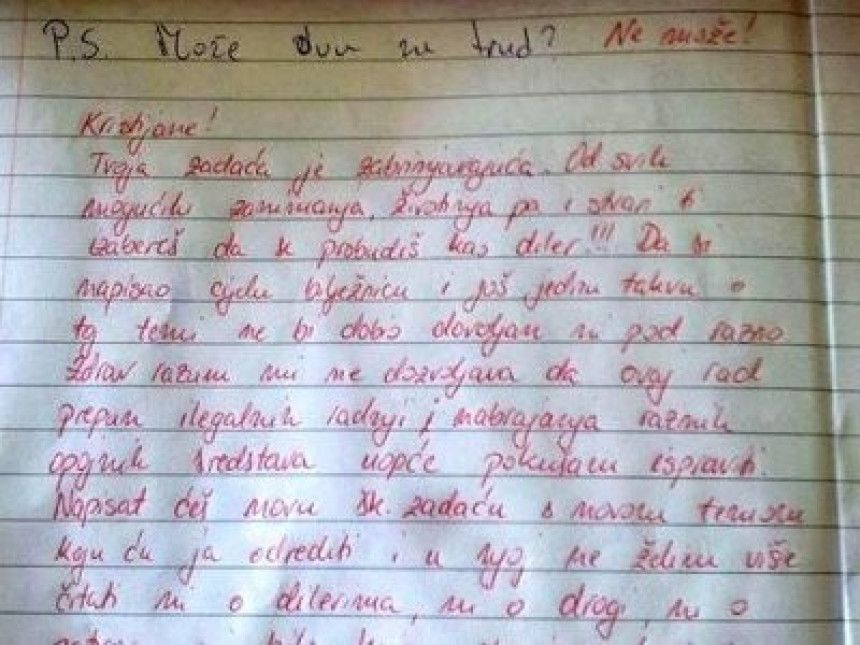 P.S. Može dva za trud? Ne može!
Kristijane!
Tvoja zadaća je zabrinjavajuća. Od svih
mogućih zanimanja, životinja pa i stvari ti
izabereš da se probudiš kao diler!!! Da si
napisao cijelu bilježnicu i još jednu takvu o
toj temi ne bi dobio dovoljan ni pod razno.
Zdrav razum mi ne dozvoljava da ovaj rad
prepun ilegalnih radnji i nabrajanja raznih
opijnih sredstava uopće pokušam ispraviti.
Napisat ćeš novu šk. zadaću s novom temom
koju ću ja odrediti i u njoj ne želim više
čitati ni o dilerima, ni o drogi, ni o